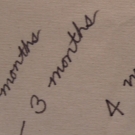 months
- 3 months
4 m